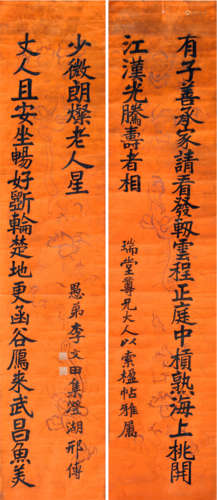 有子善承家請看發軔雲程正庭中槓熟海上桃開
江漢光騰壽者相
瑞堂尊兄大人以索楹帖雅屬
丈人且安坐暢好斲輪楚地更函谷鴈來武昌魚美
少微朗燦老人星
愚弟李文田集澄湖邢傳